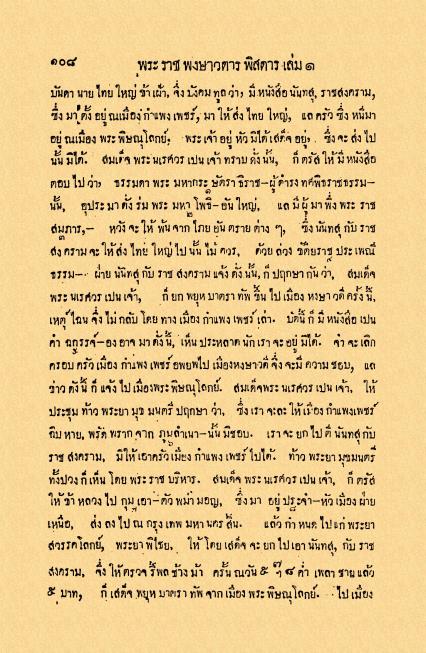 ๑๐๘ พระ ราช พงษาวดาร พิศดาร เล่ม ๑
บันดา นาย ไทย ใหญ่ ข้า เฝ้า, จึ่ง บังคม ทูล ว่า, มี หนังสือ นันทสุ, ราชสงคราม,
ซึ่ง มา ตั้ง อยู่ ณเมือง กำแพง เพชร์, มา ให้ ส่ง ไทย ใหญ่, แล ครัว ซึ่ง หนีมา
อยู่ ณเมือง พระ พิษณุโลกย์. พระ เจ้า อยู่ หัว มิได้ เสด็จ อยู่, ซึ่ง จะ ส่ง ไป
นั้น มิได้. สมเด็จ พระ นเรศวร เปน เจ้า ทราบ ดั่ง นั้น, ก็ ตรัส ให้ มี หนังสือ
ตอบ ไป ว่า, ธรรมดา พระ มหากระษัตรา ธิราช—ผู้ ดำรง ทศพิธราชธรรม—
นั้น, อุประ มา ดั่ง ร่ม พระ มหา โพธิ—อัน ใหญ่, แล มี ผู้ มา พึ่ง พระ ราช
สมภาร,— หวัง จะ ให้ พ้น จาก ไภย อัน ตราย ต่าง ๆ, ซึ่ง นันทสุ กับ ราช
สง คราม จะ ให้ ส่ง ไทย ใหญ่ ไป นั้น ไม่ ควร, ด้วย ล่วง ขัติยราช ประ เพณี
ธรรม— ฝ่าย นันทสุ กับ ราช สงคราม แจ้ง ดั่ง นั้น, ก็ ปฤกษา กัน ว่า, สมเด็จ
พระ นเรศวร เปน เจ้า, ก็ ยก พยุห บาตรา ทัพ ขึ้น ไป เมือง หงษา วดี ครั้ง นี้,
เหตุ ไฉน จึ่ง ไม่ กลับ โดย ทาง เมือง กำแพง เพชร์ เล่า. บัดนี้ ก็ มี หนังสือ เปน
คำ ฉกรรจ์—อง อาจ มา ดั่ง นี้, เห็น ประหลาด นัก เรา จะ อยู่ มิได้. จำ จะ เลิก
ครอบ ครัว เมือง กำแพง เพชร์ อพยพไป เมืองหงษาวดี จึ่ง จะ มี ความ ชอบ, แล
ข่าว ดั่งนี้ ก็ แจ้ง ไป เมืองพระ พิษณุโลกย์. สมเด็จพระ นเรศวร เปน เจ้า, ให้
ประชุม ท้าว พระยา มุข มนตรี ปฤกษา ว่า, ซึ่ง เรา จะละ ให้ เมือง กำแพงเพชร์
ฉิบ หาย, พรัด พราก จาก ภูมลำเนา—นั้น มิชอบ. เรา จะ ยก ไป ตี นันทสุ กับ
ราช สงคราม, มิให้ เอาครัว เมือง กำแพง เพชร์ ไปได้. ท้าว พระยา มุขมนตรี
ทั้งปวง ก็ เห็น โดย พระ ราช บริหาร. สมเด็จ พระ นเรศวร เปน เจ้า, ก็ ตรัส
ให้ ข้า หลวง ไป กุม เอา—ตัว พม่า มอญ, ซึ่ง มา อยู่ ประจำ—หัว เมือง ฝ่าย
เหนือ, ส่ง ลง ไป ณ กรุง เทพ มหา นคร สิ้น. แล้ว กำ หนด ไป แก่ พระยา
สวรรคโลกย์, พระยา พิไชย, ให้ โดย เสด็จ จะ ยก ไป เอา นันทสุ, กับ ราช
สงคราม, จึ่ง ให้ ตรวจ รี้พล ช้าง ม้า ครั้น ณวัน ๕ ๘ ค่ำ เพลา ชาย แล้ว
๕ บาท, ก็ เสด็จ พยุห บาตรา ทัพ จาก เมือง พระ พิษณุโลกย์. ไป เมือง